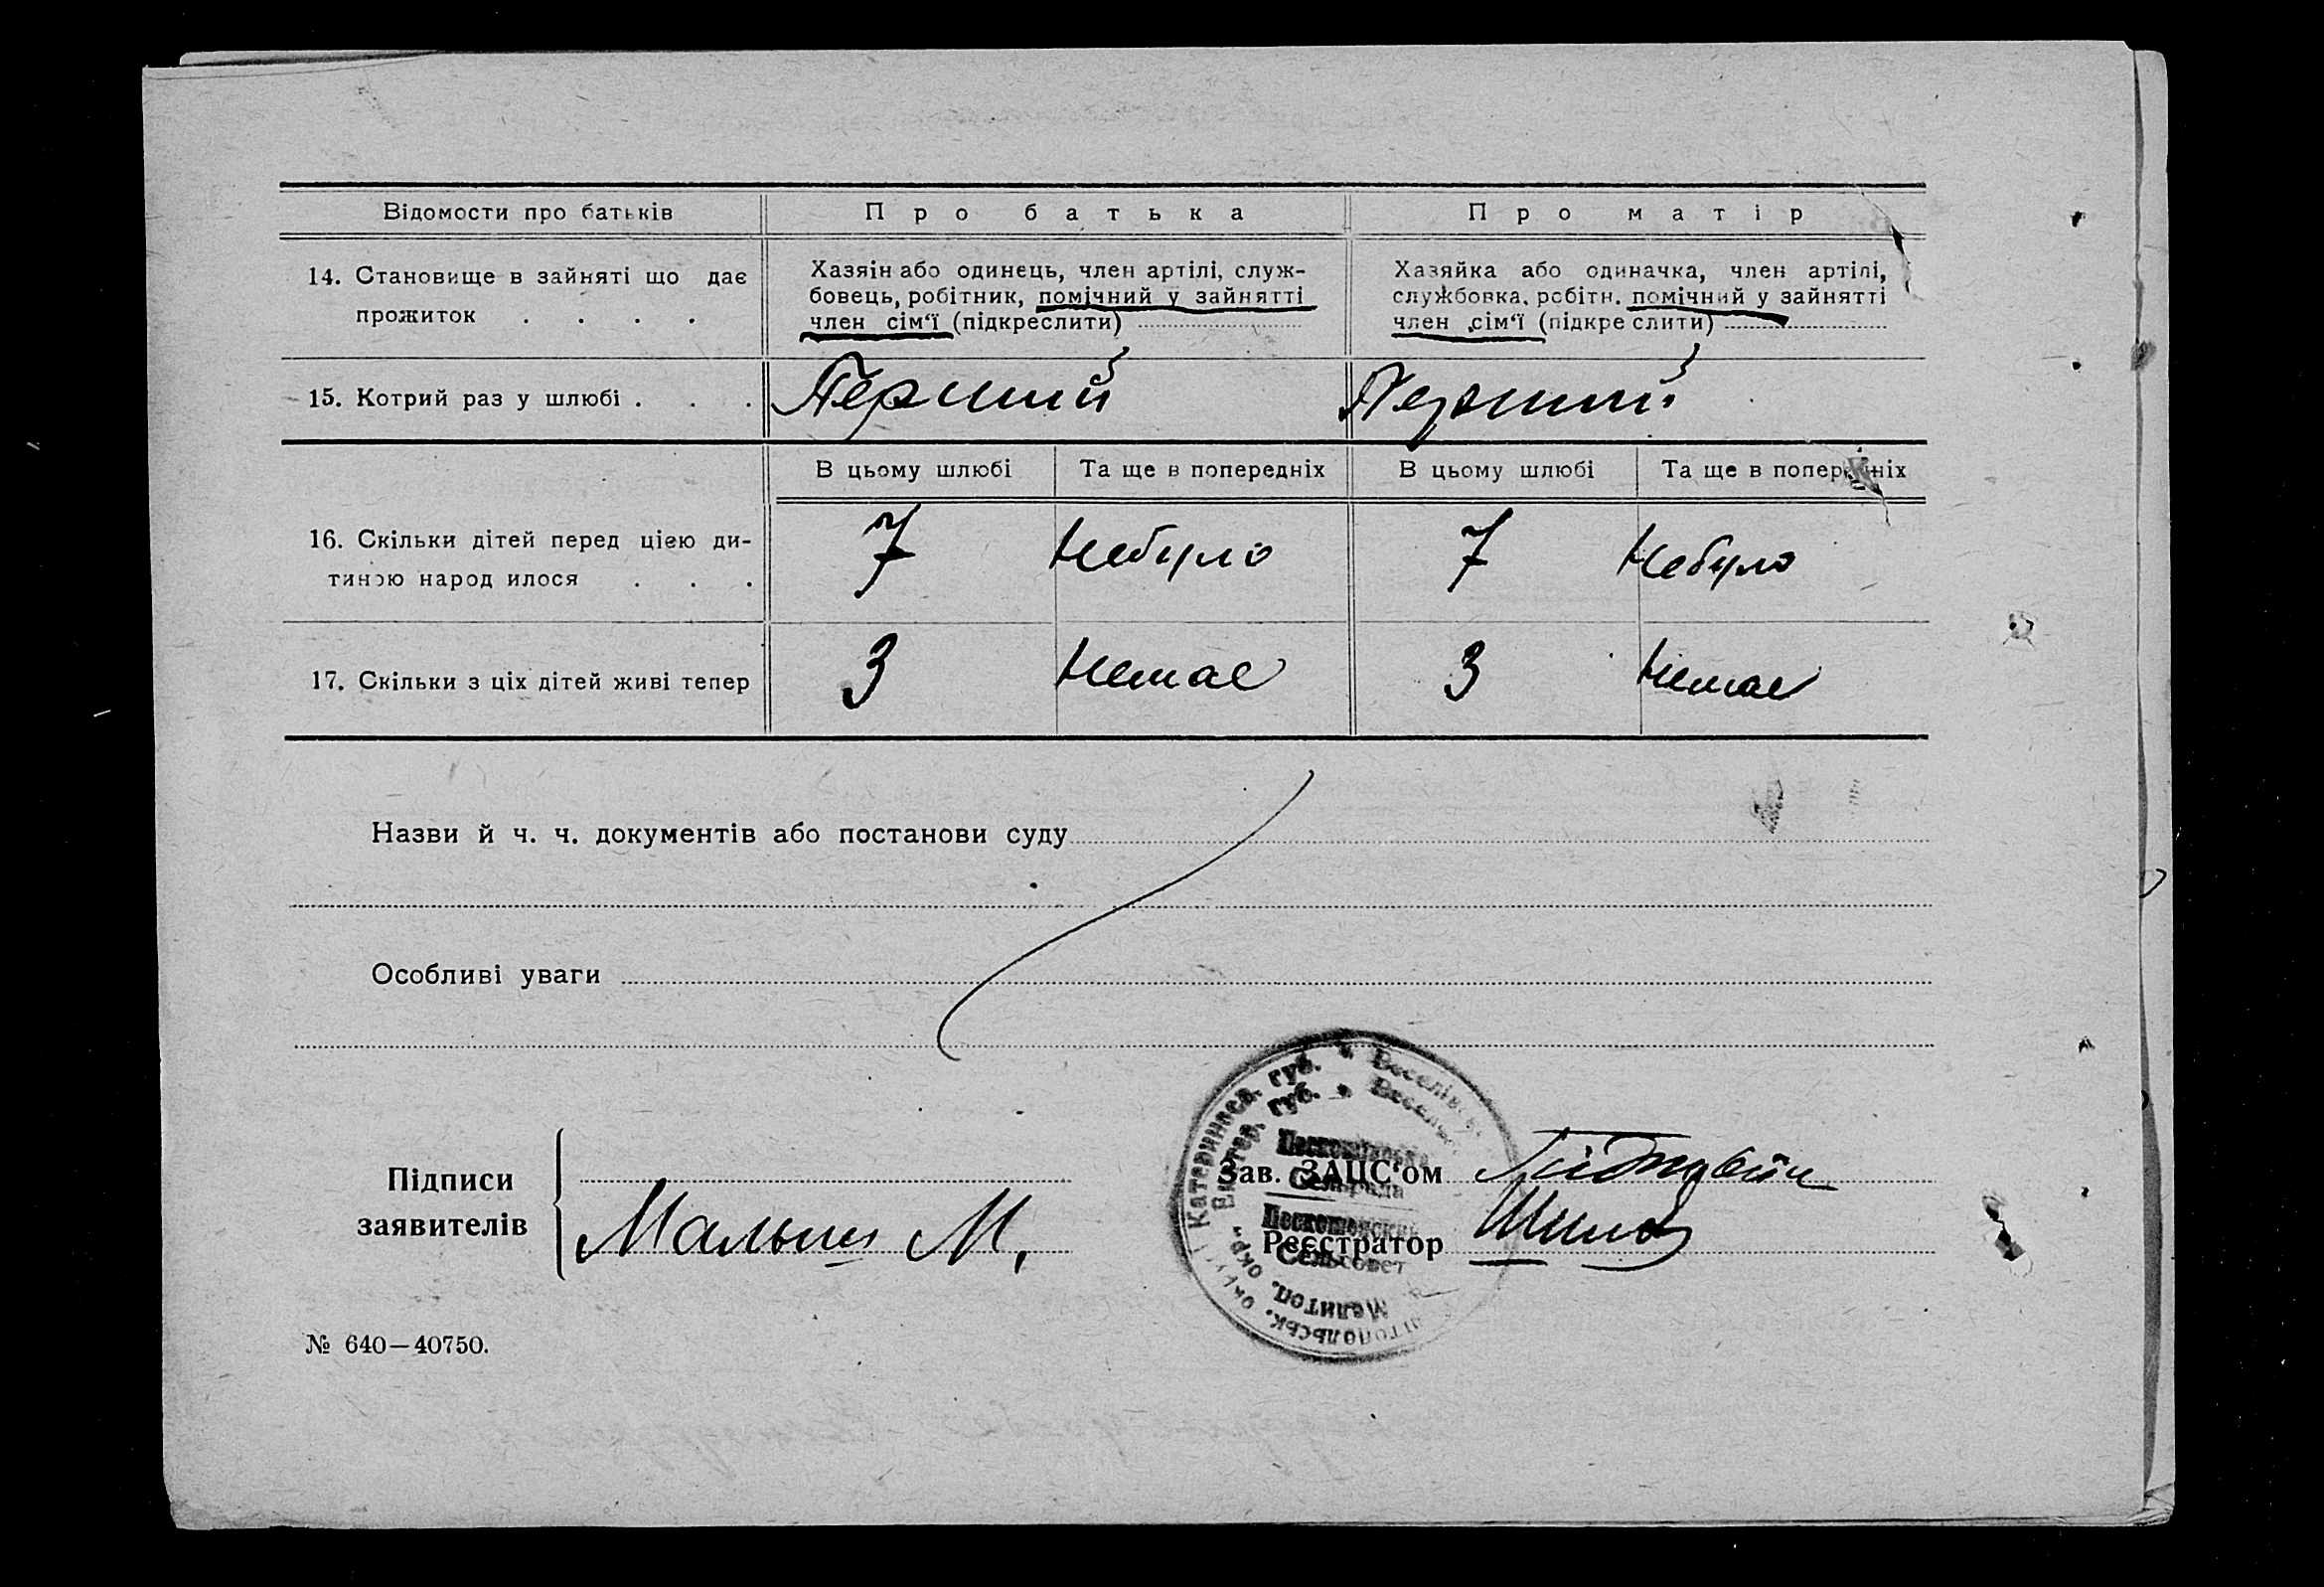 Відомости про батьків
Про батька
Про матір
14. Становище в зайняті що дає
прожиток . . . .
Хазяін або одинець, член артілі, служ-
бовець, робітник, помічний у зайнятті
член сім‘ї (підкреслити)
Хазяйка або одиначка, член артілі,
службовка, робітн. помічний у зайнятті
член сім‘ї (підкреслити)
15. Котрий раз у шлюбі . . .
Перший
Перший
В цьому шлюбі
Та ще в попередніх
В цьому шлюбі
Та ще в попередніх
16. Скільки дітей перед цією ди-
тиною народилося . . .
7
Небуло
7
Небуло
17. Скільки з ціх дітей живі тепер
3
Немае
3
Немае
Назви й ч. ч. документів або постанови суду
Особливі уваги
Підписи
заявителів
М.
Зав. ЗАЦС‘ом
Реєстратор
Катеринос. губ.
Екатер. губ.
Сельрада
Сельсовет
Мелитоп. окр.
№ 640—40750.